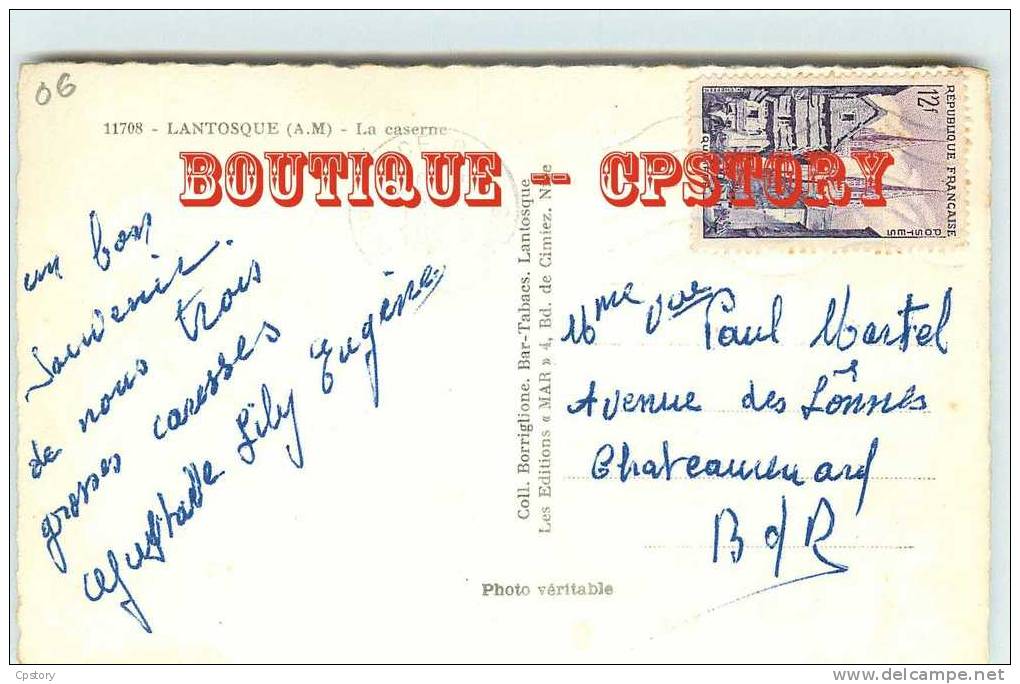 06
11708 - LANTOSQUE (A.M) - La caserne
BOUTIQUE + CPSTORY
12f
REPUBLIQUE FRANÇAISE
POSTES
un bon
souvenir
de nous trois
grosses caresses
Lily Eugénie
Coll. Borriglione. Bar-Tabacs. Lantosque
Les Editions « MAR » 4, Bd. de Cimiez. Nice
Mme Vve Paul Martel
Avenue des
Chateaurenard
B d R
Photo véritable
Cpstory
delcampe.net